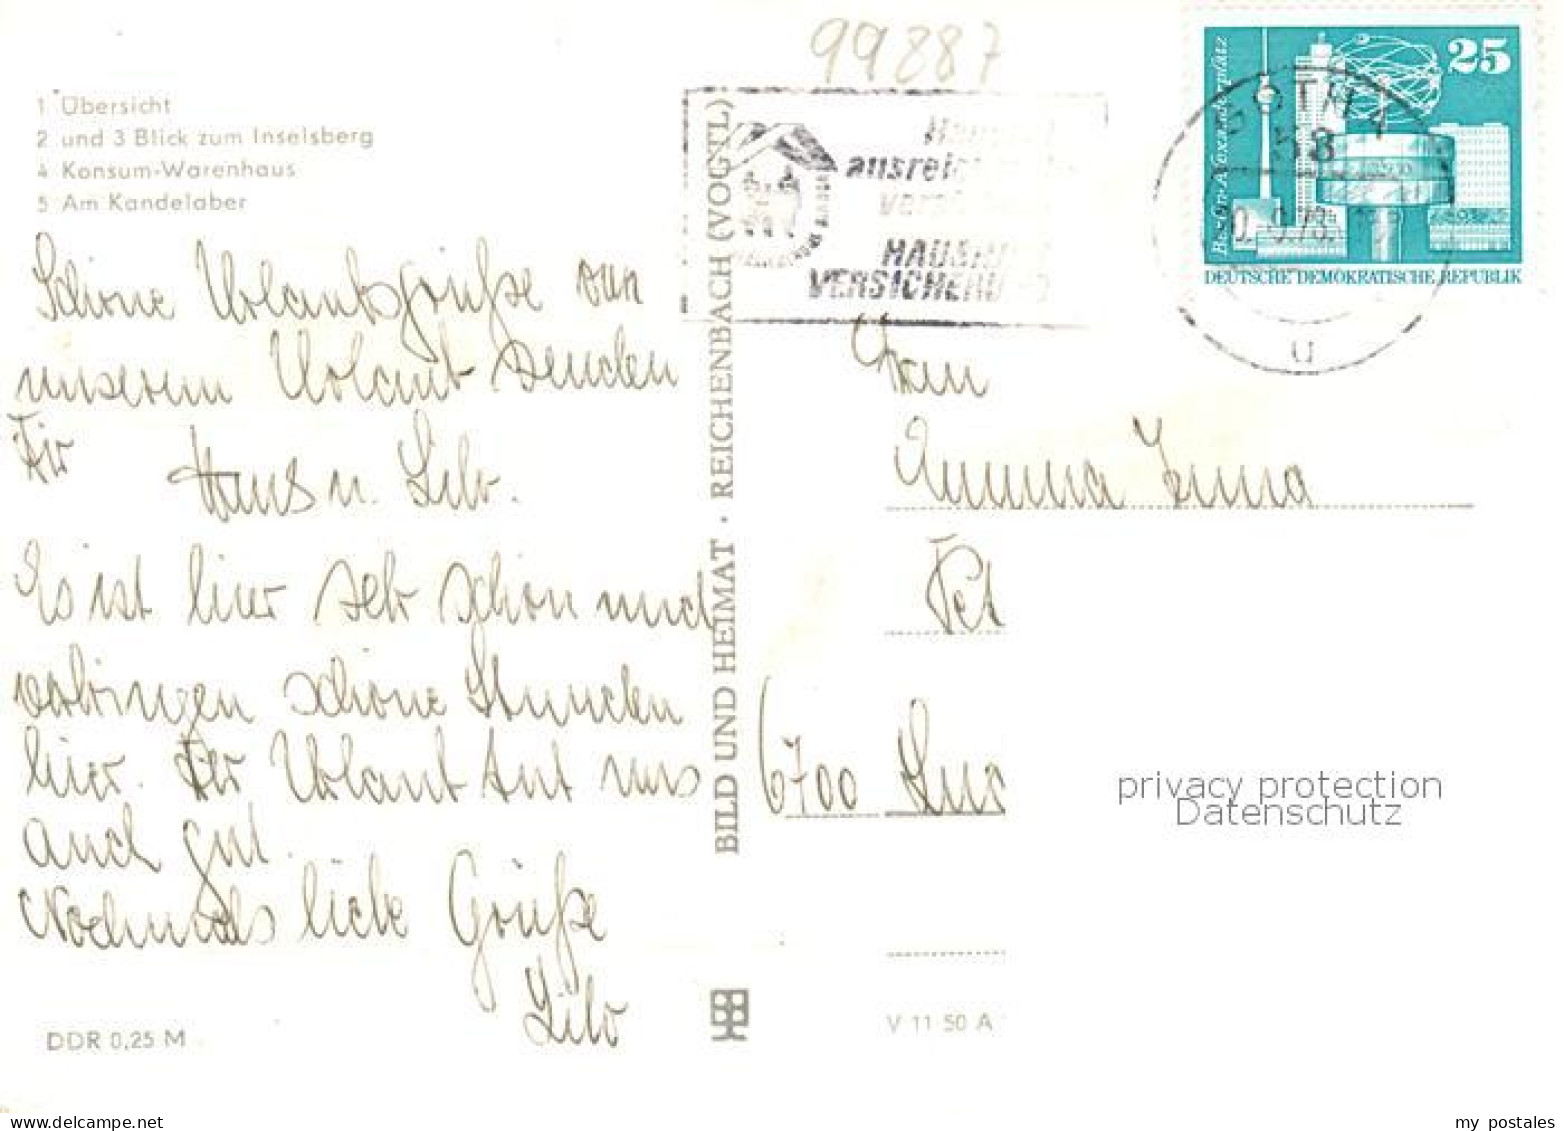 99887
1 Übersicht
2 und 3 Blick zum Inselsberg
4 Konsum-Warenhaus
5 Am Kandelaber
Schöne Urlaubsgrüße von
unserem Urlaub senden
Dir
Hans u. Lilo.
Es ist hier sehr schön und
verbringen schöne Stunden
hier. Der Urlaub tut uns
auch gut.
Nochmals liebe Grüße
Lilo
DDR 0,25 M
BILD UND HEIMAT · REICHENBACH (VOGTL)
VERSICHERU
GOTHA
58
u
25
Berlin-Alexanderplatz
DEUTSCHE DEMOKRATISCHE REPUBLIK
Frau
6700
V 11 50 A
privacy protection
Datenschutz
www.delcampe.net
my_postales